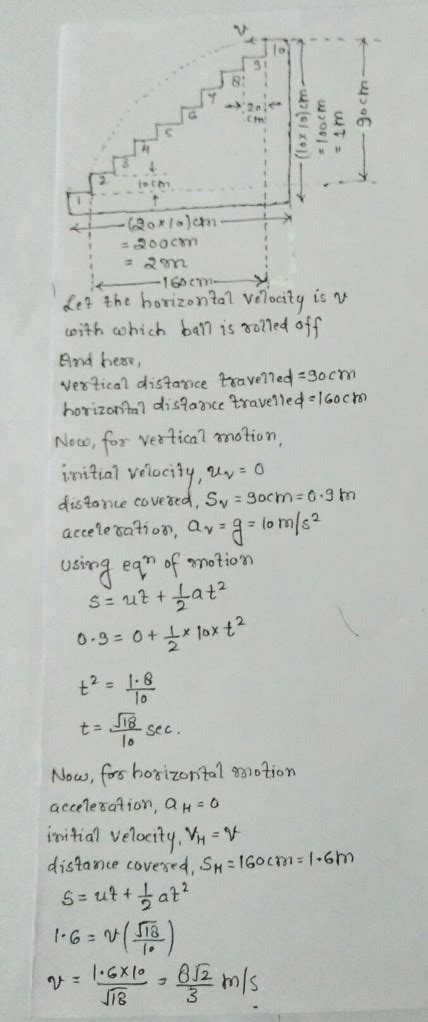 v
10
9
8
7
6
5
4
3
2
1
20
cm
10cm
(10×10)cm
= 100cm
= 1m
90cm
(20×10)cm
= 200cm
= 2m
160cm
Let the horizontal velocity is v
with which ball is rolled off
And here,
vertical distance travelled = 90cm
horizontal distance travelled = 160cm
Now, for vertical motion,
initial velocity, u_v = 0
distance covered, S_v = 90cm = 0.9m
acceleration, a_v = g = 10m/s²
using eqⁿ of motion
s = ut + 1/2 at²
0.9 = 0 + 1/2 × 10 × t²
t² = 1.8/10
t = √18/10 sec.
Now, for horizontal motion
acceleration, a_H = 0
initial velocity, V_H = v
distance covered, S_H = 160cm = 1.6m
s = ut + 1/2 at²
1.6 = v(√18/10)
v = 1.6×10/√18 = 8√2/3 m/s